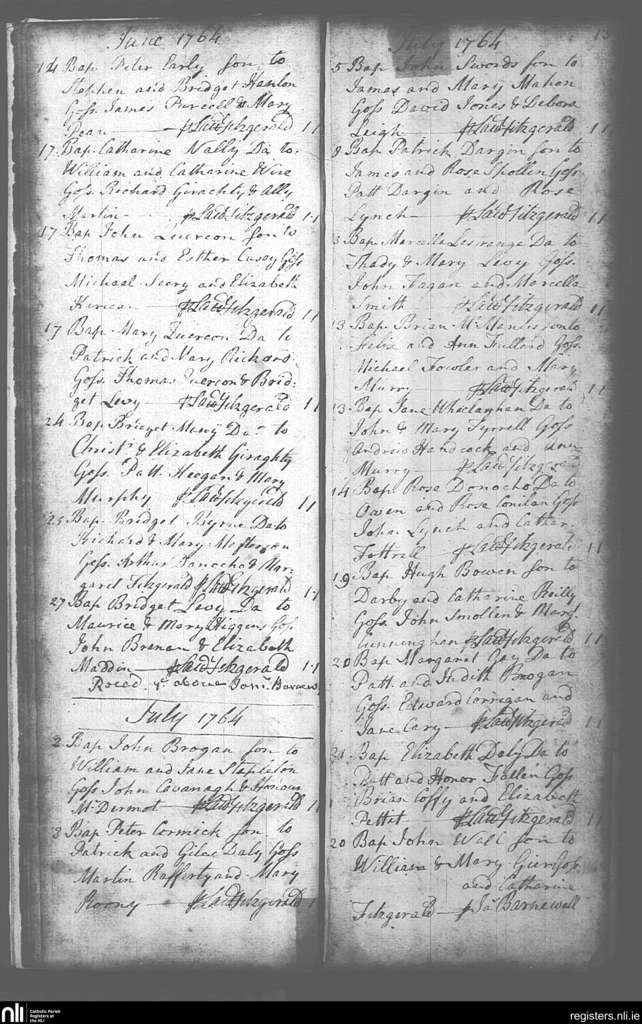 June 1764
14 Bap. Peter Early son to
Stephen and Bridget Hanlon
Goss. James Purcell & Mary
Dean — p Laud fitzgerald 1 1
17. Bap. Catharine Nally Da to
William and Catharine Wire
Goss. Richard Giraghty & Ally
Martin — p Laud fitzgerald 1 1
17 Bap. John son to
Thomas and Esther Casey Goss
Michael and Elizabeth
p Laud fitzgerald 1 1
17 Bap. Mary Da to
Patrick and Mary Richard
Goss. Thomas & Brid-
get Levy — p Laud fitzgerald 1 1
24 Bap. Bridget Da to
Christr & Elizabeth Giraghty
Goss. Patt Heegan & Mary
Murphy p Laud fitzgerald 1 1
25 Bap. Bridget Byrne Da to
Richard & Mary
Goss. Arthur & Mar-
garet Fitzgerald p Laud fitzgerald 1 1
27 Bap Bridget Levy Da to
Maurice & Mary Higgins Goss
John Brenan & Elizabeth
Maddin — p Laud fitzgerald 1 1
Reced. ye above
July 1764
2 Bap John Brogan son to
William and Jane Stapleton
Goss John Cavanagh & Honour
McDermot — p Laud fitzgerald 1 1
3 Bap Peter Cormick son to
Patrick and Giles Daly Goss
Martin Rafferty and Mary
Roony — p Laud fitzgerald 1
July 1764 13
5 Bap John Swords son to
James and Mary Mahon
Goss David Jones & Debora
Leigh — p Laud fitzgerald 1 1
8 Bap Patrick Dargin son to
James and Rose Spollen Goss
Patt Dargin and Rose
Lynch — p Laud fitzgerald 1 1
Bap Marcella Lestrange Da to
Thady & Mary Levey Goss.
John Fagan and Marcella
Smith — p Laud fitzgerald 1 1
13 Bap. Brian McManus son to
Felix and Ann Goss
Michael Fowler and Mary
Murry — p Laud fitzgerald 1 1
13 Bap Jane Whelaghan Da to
John & Mary Tyrrell Goss
Andrew Handcock and Ann
Murry — p Laud fitzgerald
14 Bap Rose Donocho Da to
Owen and Rose Conilan Goss
John Lynch and Cathar.
Fottrell — p Laud fitzgerald 1 1
19 Bap Hugh Bowen son to
Darby and Catharine Reilly
Goss John Smollen & Mary
Cunningham p Laud fitzgerald 1 1
20 Bap Margaret Da to
Patt. and Judith Brogan
Goss Edward Corrigan and
Jane Cary — p Laud fitzgerald 1 1
21 Bap Elizabeth Daly Da to
Patt and Honor Fallen Goss
Brian Coffy and Elizabeth
Pettit — p Laud fitzgerald 1 1
20 Bap John Wall son to
William & Mary Goss
and Catharine
Fitzgerald — p Ja Barnewall
nli Catholic Parish
Registers at
the NLI
registers.nli.ie